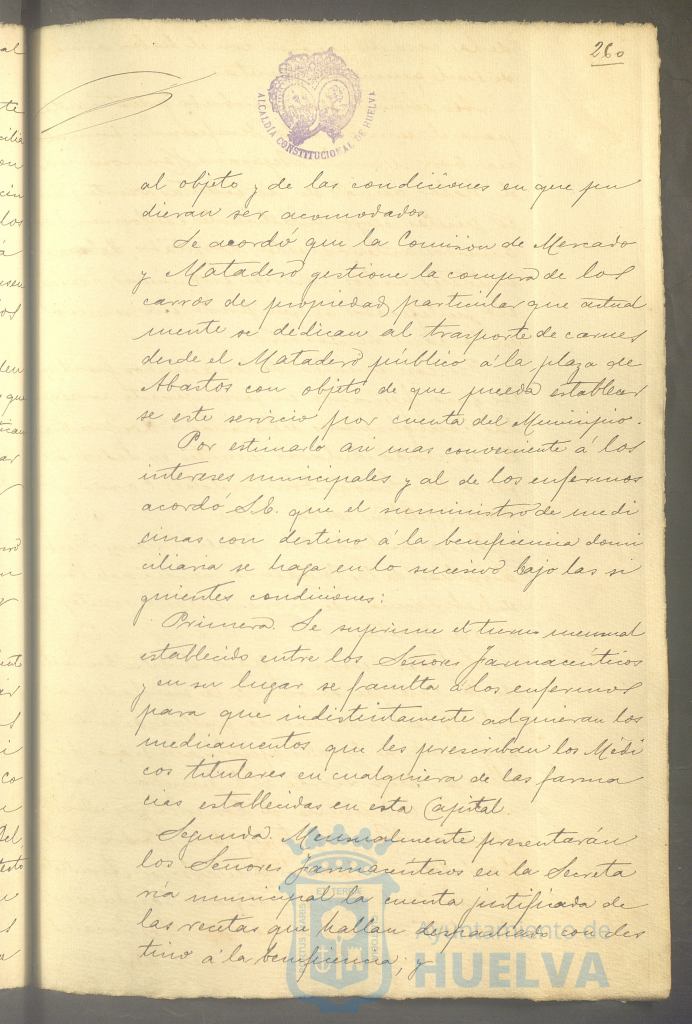 260
ALCALDÍA CONSTITUCIONAL DE HUELVA
al objeto y de las condiciones en que pu
dieran ser acomodados.
Se acordó que la Comision de Mercado
y Matadero gestione la compra de los
carros de propiedad particular que actual
mente se dedican al trasporte de carnes
desde el Matadero público á la plaza de
Abastos con objeto de que pueda establecer
se este servicio por cuenta del Municipio.
Por estimarlo asi mas conveniente á los
intereses municipales y al de los enfermos
acordó S.E. que el suministro de medi
cinas con destino á la beneficencia domi
ciliaria se haga en lo sucesivo bajo las si
guientes condiciones:
Primera. Se suprime el turno mensual
establecido entre los Señores farmacéuticos
y en su lugar se faculta á los enfermos
para que indistintamente adquieran los
medicamentos que les prescriban los Médi
cos titulares en cualquiera de las farma
cias establecidas en esta Capital.
Segunda. Mensualmente presentarán
los Señores farmaceuticos en la Secreta
ría municipal la cuenta justificada de
las recetas que hallan despachado con des
tino á la beneficencia; y
Ayuntamiento de
HUELVA